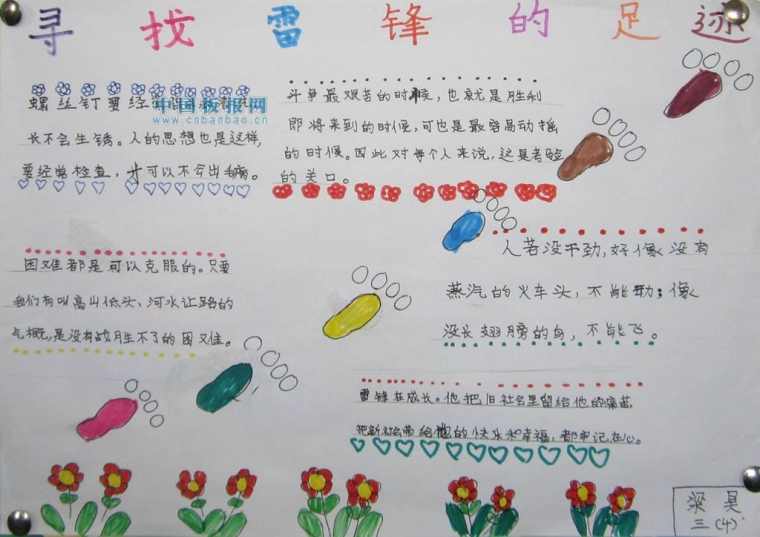 寻找雷锋的足迹
中国板报网
www.cnbanbao.cn
螺丝钉要经
长不会生锈。人的思想也是这样,
要经常检查,才可以不会出毛病。
斗争最艰苦的时候,也就是胜利
即将来到的时候,可也是最容易动摇
的时候。因此对每个人来说,这是考验
的关口。
人若没干劲,好像没有
蒸汽的火车头,不能动;像
没长翅膀的鸟,不能飞。
困难都是可以克服的。只要
我们有叫高山低头、河水让路的
气概,是没有战胜不了的困难。
雷锋在成长。他把旧社会里留给他的痛苦
把新社会带给他的快乐和幸福,都牢记在心。
梁昊
三(4)